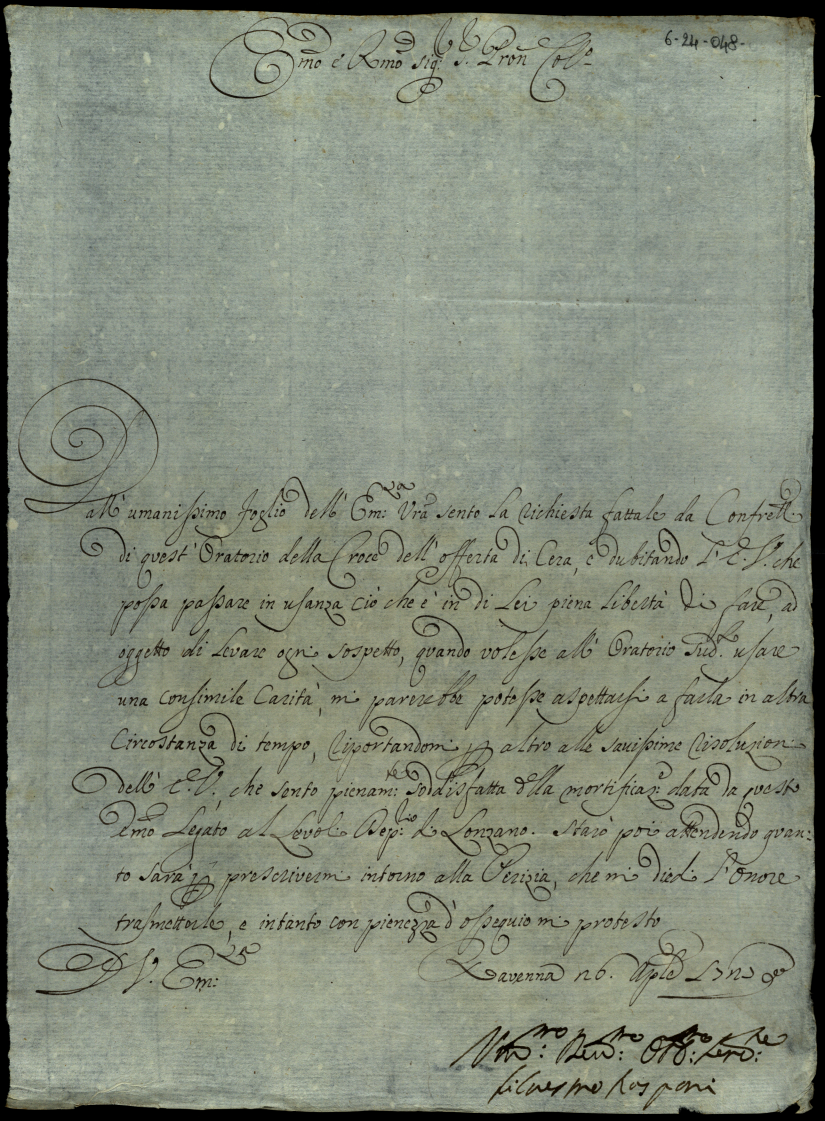 6-24-048-
Emo è Rmo sig: s. Pron Col:o
all' umanissimo foglio dell' Em:za Vrã sento la richiesta fattale da Confrelli
di quest' Oratorio della Croce dell' offerta di Cera, e dubitando l' E: V: che
possa passare in usanza ciò che è in di Lei piena libertà di fare, ad
oggetto di Levare ogni sospetto, quando volesse all' Oratorio sud:o usare
una consimile Carità, mi parerebbe potesse aspettarsi a farla in altra
Circostanza di tempo, riportandomi p altro alle savissime risoluzioni
dell' E: V:, che sento pienam:te soddisfatta della mortificaz: data da questo
Emo Legato al Dep: di Lonzano. Starò poi attendendo quan:
to sarà p prescrivermi intorno alla Perizia, che mi diedi l' onore
trasmetterle, e intanto con pienezza d' ossequio mi protesto
D V. Em:za
Ravenna 26. Aple 1725
Um:mo Dev:mo Obb:mo Serv:re
Silvestro Rasponi